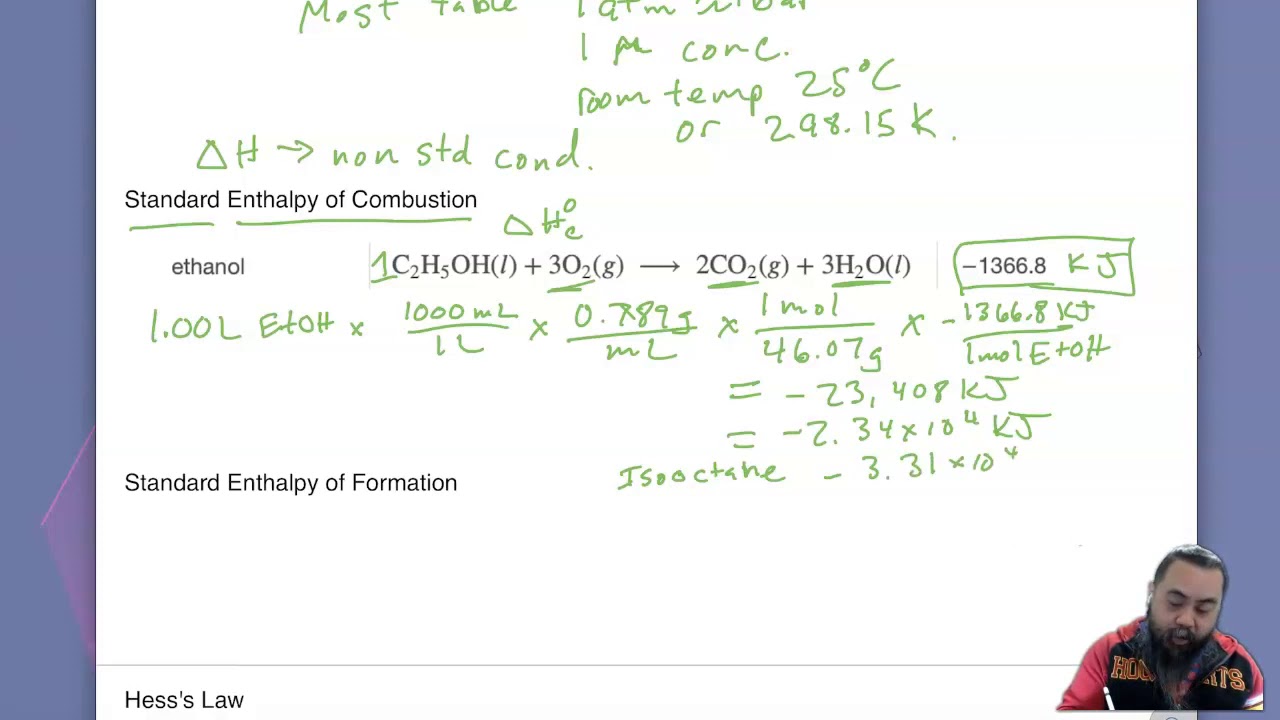 Most table 1 atm
1 M conc.
room temp 25°C
or 298.15 K.
ΔH → non std cond.
Standard Enthalpy of Combustion
ΔH°c
ethanol 1C₂H₅OH(l) + 3O₂(g) ⟶ 2CO₂(g) + 3H₂O(l) −1366.8 KJ
1.00L EtOH × 1000 mL / 1L × 0.789g / mL × 1 mol / 46.07g × -1366.8 KJ / 1mol EtOH
= - 23,408 KJ
= -2.34×10⁴ KJ
Isooctane - 3.31×10⁴
Standard Enthalpy of Formation
Hess's Law